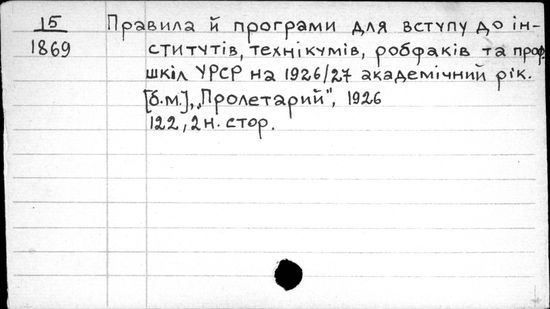 15
1869
Правила й програми для вступу до ін-
ститутів, технікумів, робфаків та проф.
шкіл УРСР на 1926/27 академічний рік.
[б.м.], „Пролетарий", 1926
122, 2 н. стор.